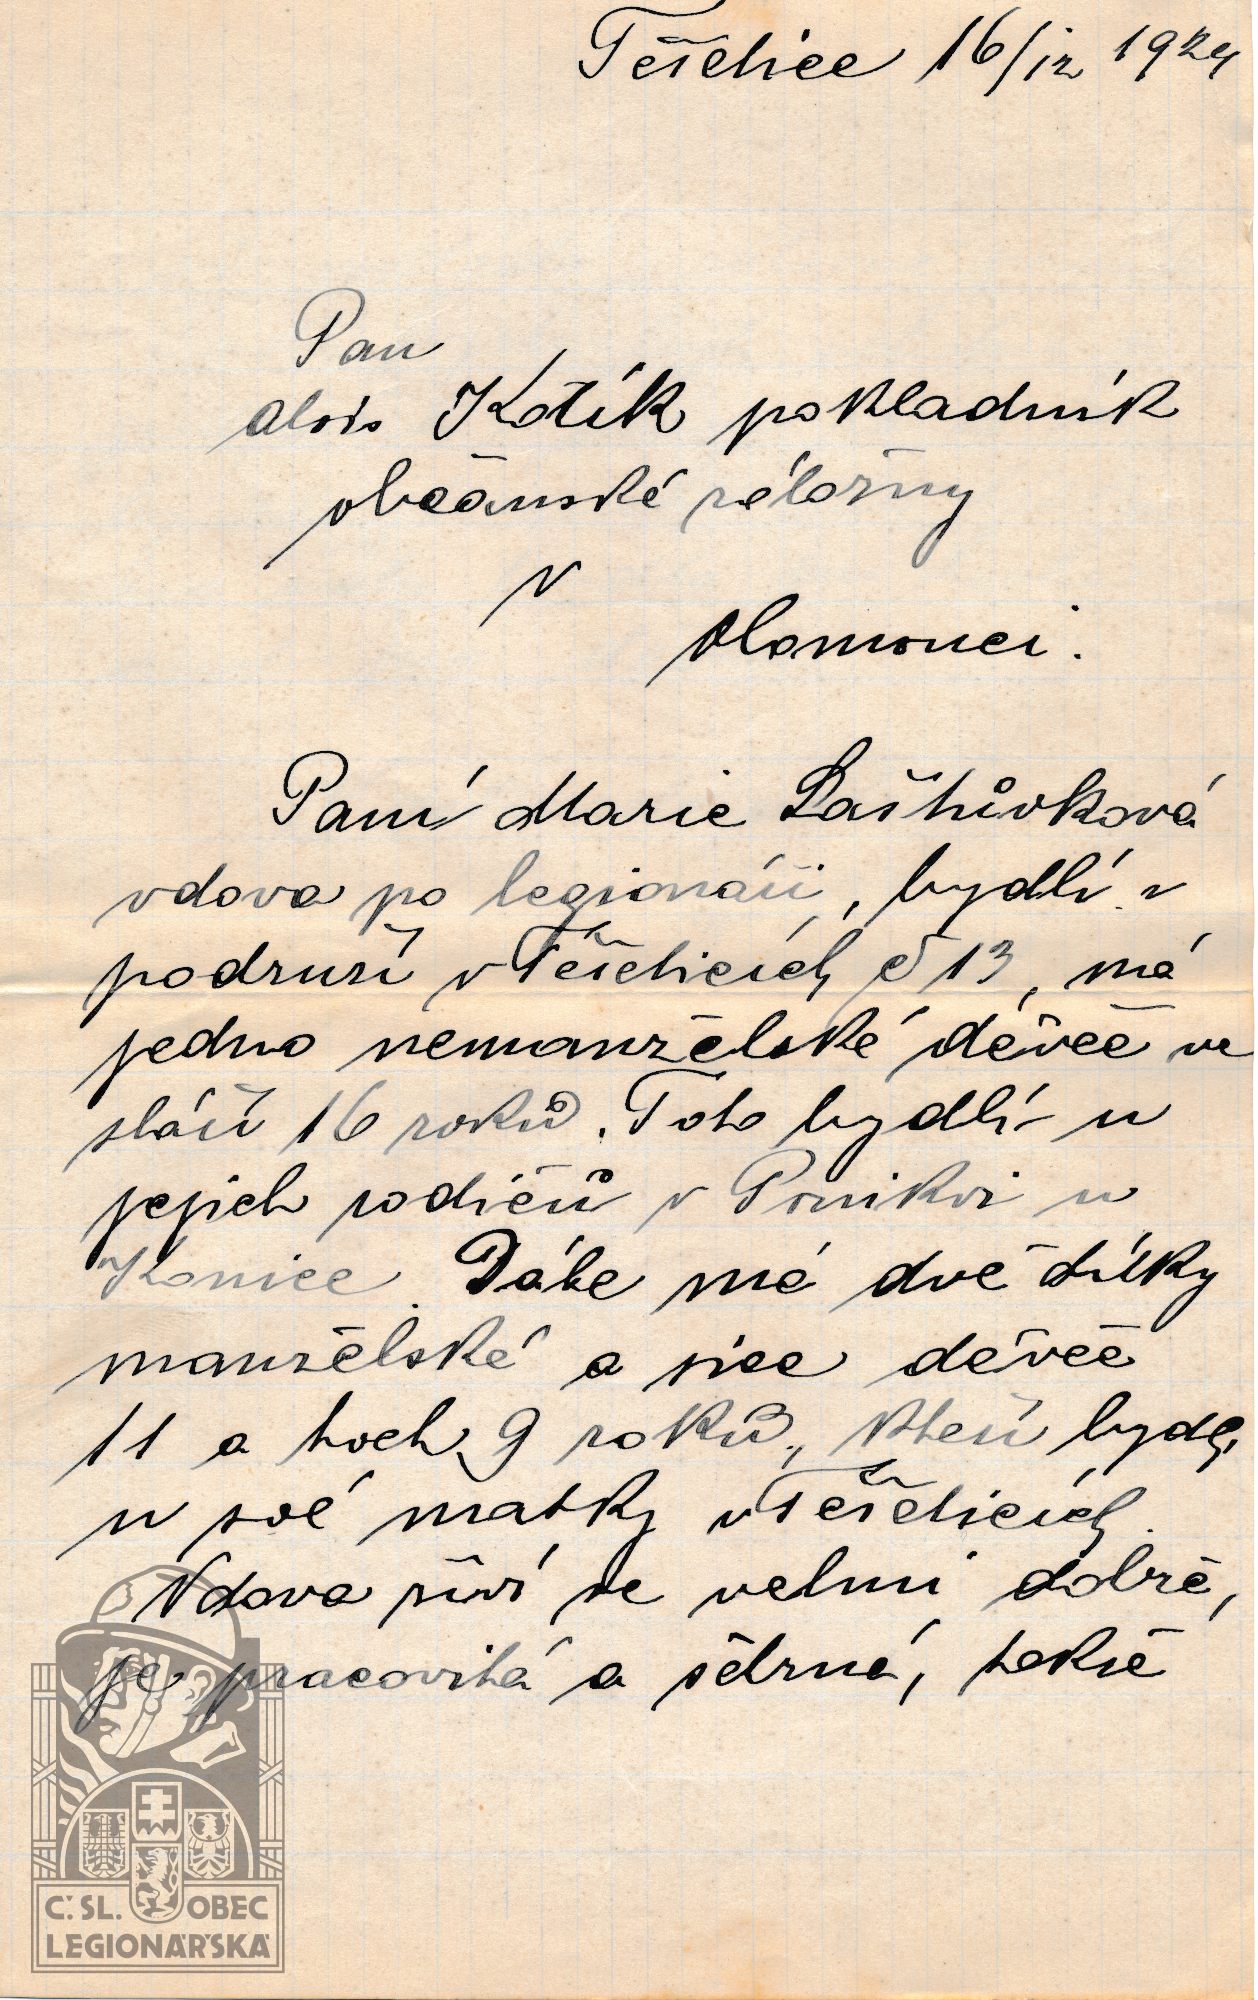 Těšetice 16/ix 1924
Pan
Alois Kotík pokladník
občanské záložny
v
Olomouci.
Paní Marie Laštůvková
vdova po legionáři, bydlí v
podruží v Těšeticích č 13, má
jedno nemanželské děvče ve
stáří 16 roků. Toto bydlí u
jejich rodičů v Ponikvi u
Konice. Dále má dvě dítky
manželské a sice děvče
11 a hoch 9 roků, kteří bydlí
u své matky v Těšeticích.
Vdova živí se velmi dobře,
je pracovitá a šetrná, takže
Č. SL. OBEC
LEGIONÁŘSKÁ